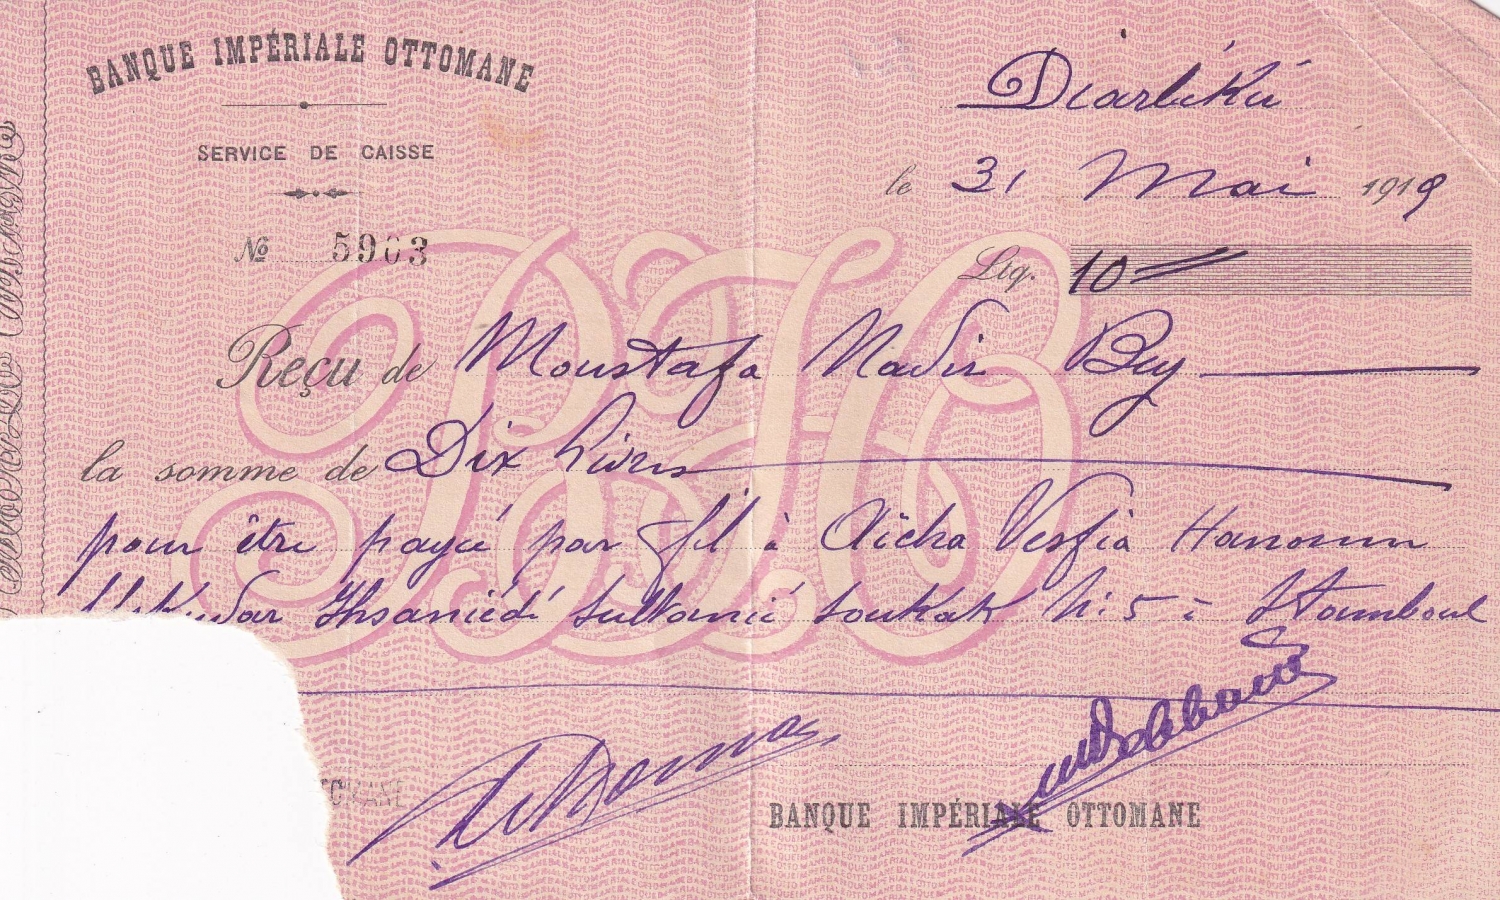 BANQUE IMPÉRIALE OTTOMANE
SERVICE DE CAISSE
Nº 5903
Diarbékir
le 31 Mai 1919
Ltq. 10
Reçu de Moustafa Nadir Bey
la somme de Dix Livres
pour être payé par fil à Aïcha Vesfia Hanoum
Ihsaniédé Sultanié Soukak N: 5 à Stamboul
BANQUE IMPÉRIALE OTTOMANE